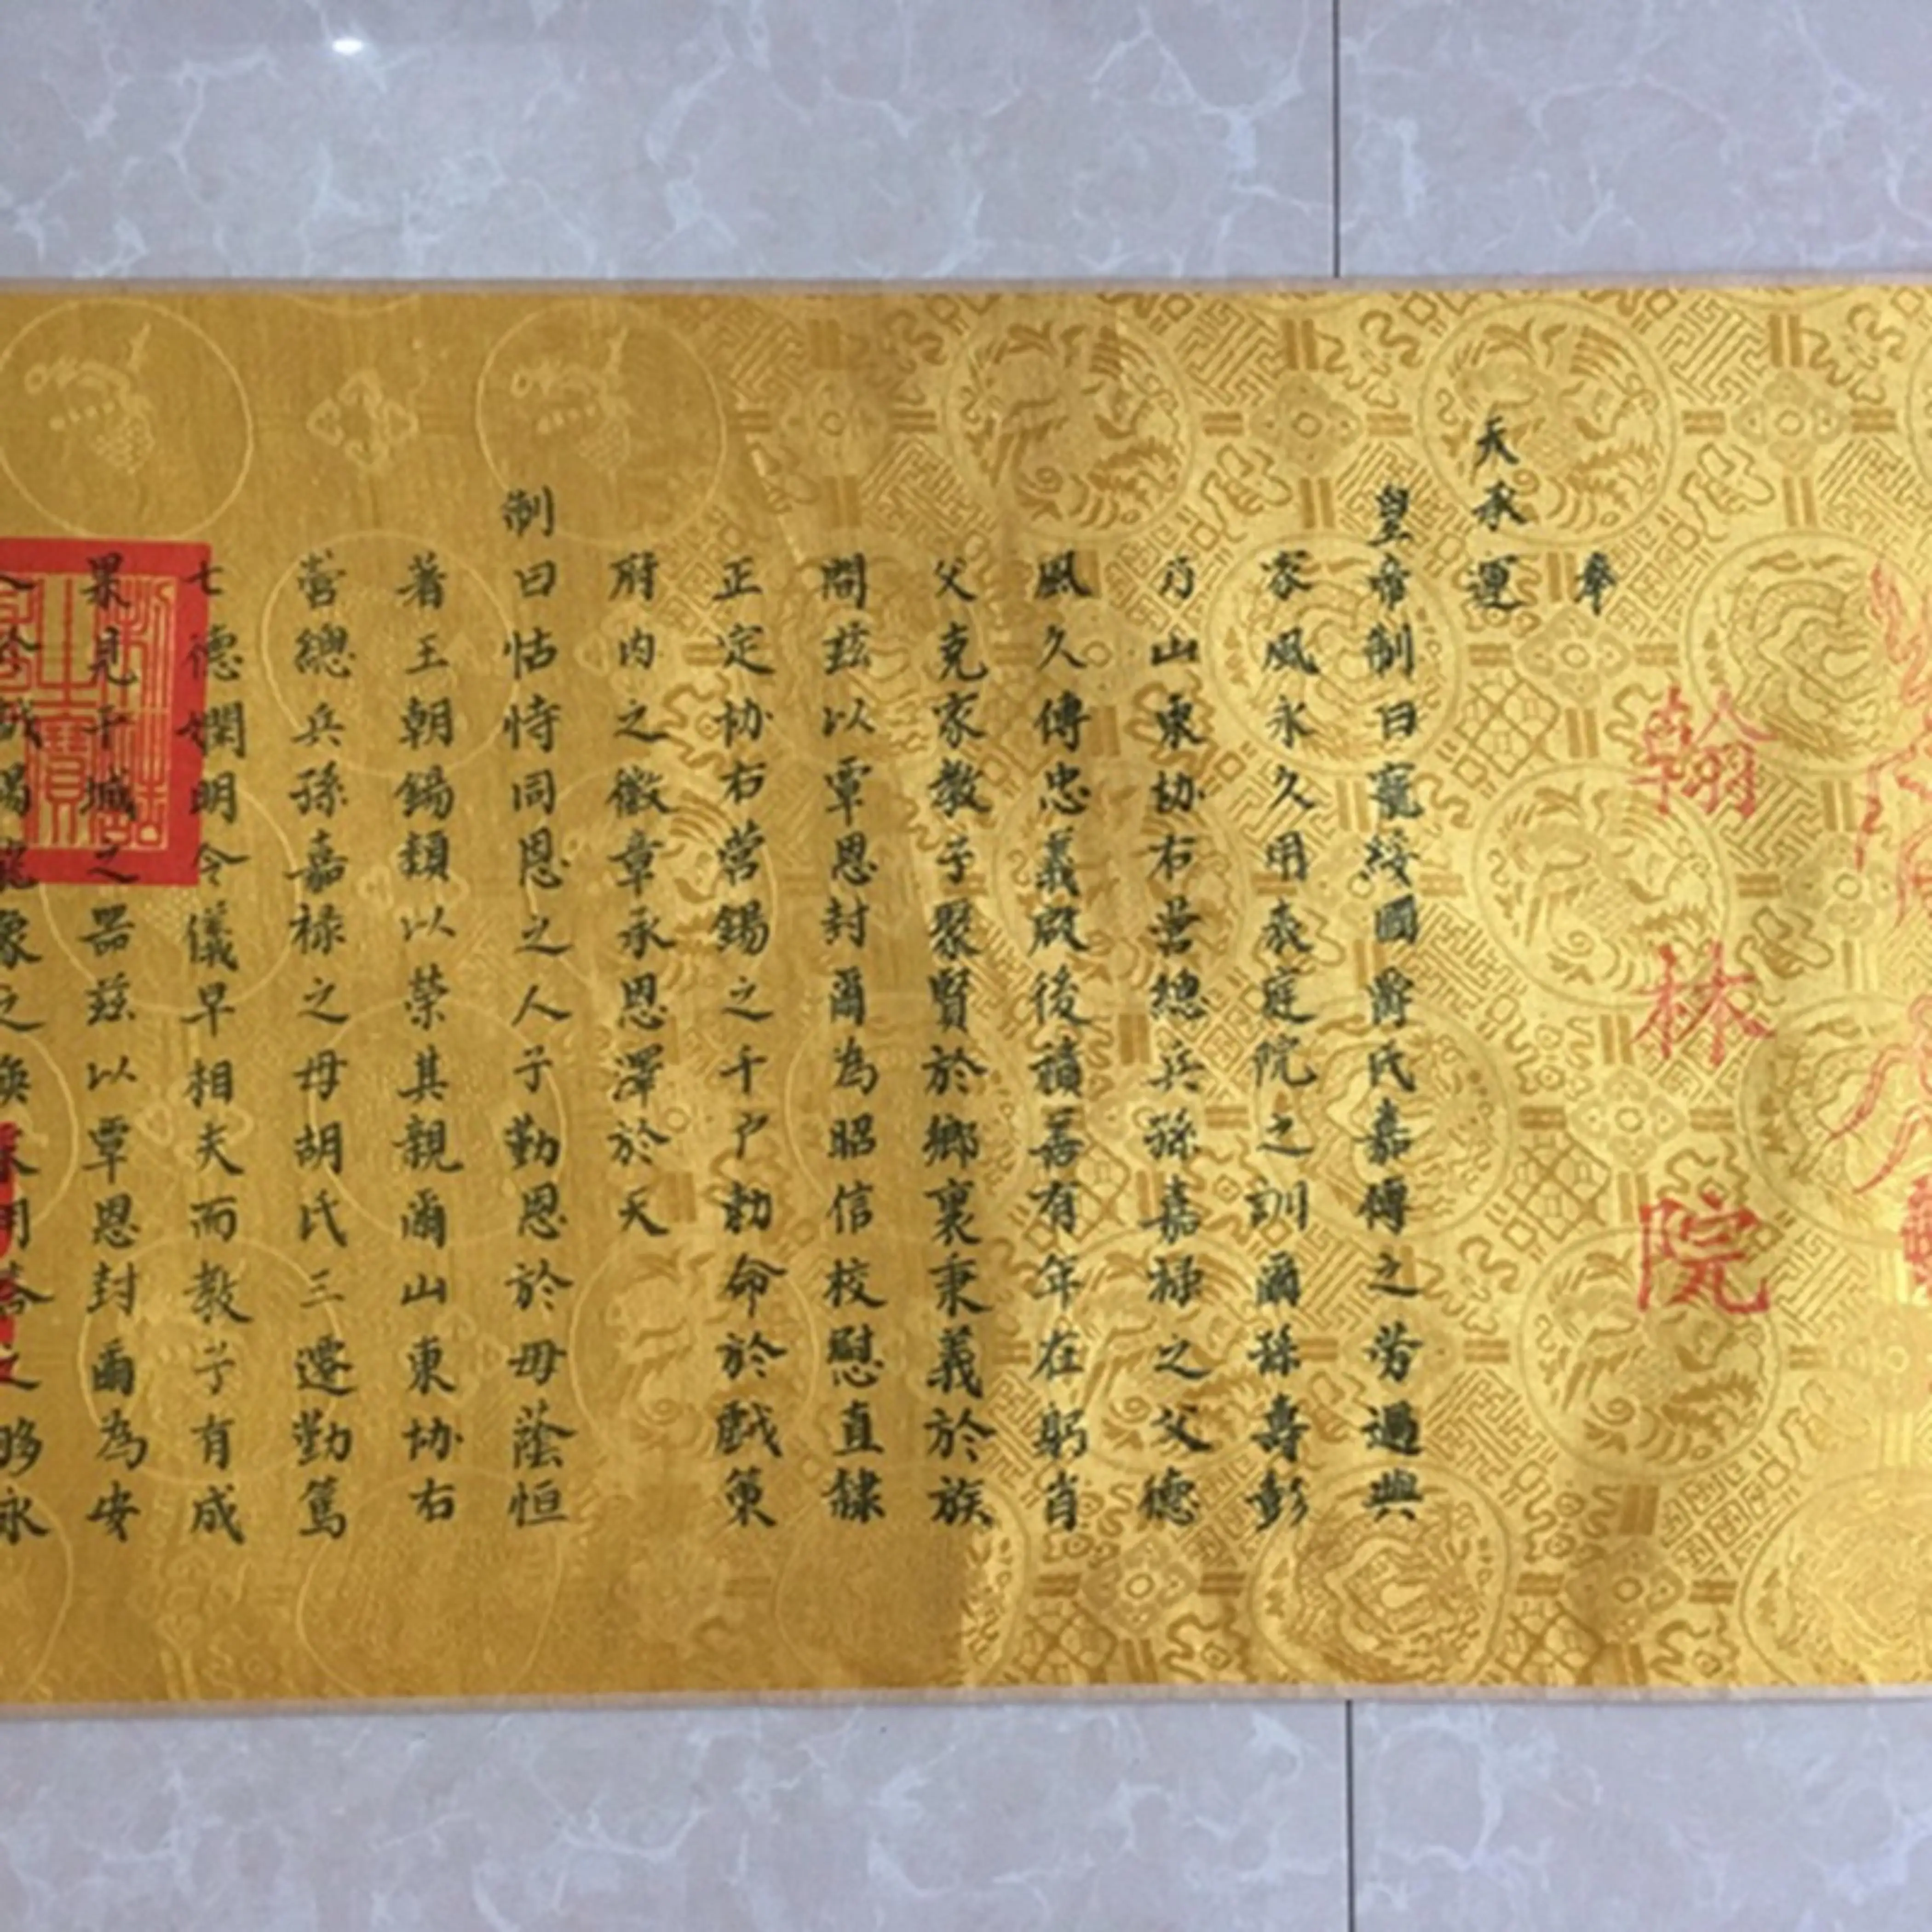 翰林院
奉
天承運
皇帝制曰寵綏國爵氏嘉傳之勞過興
家風永久用表庭院之訓爾孫壽彭
乃山東協右营總兵孫嘉祿之父德
風久傳忠義啟後積善有年在躬肖
父克家教子聚賢於鄉裏秉義於族
問茲以覃恩封爾為昭信校慰直隸
正定协右营錫之千户勅命於戲策
府内之徽章承恩澤於天
制曰怙恃同恩之人子勤恩於毋蔭恒
著王朝錫類以榮其親爾山東协右
营總兵孫嘉祿之母胡氏三遷勤篤
七德嫻明令儀早相夫而教子有成
果見干城之器茲以覃恩封爾為安